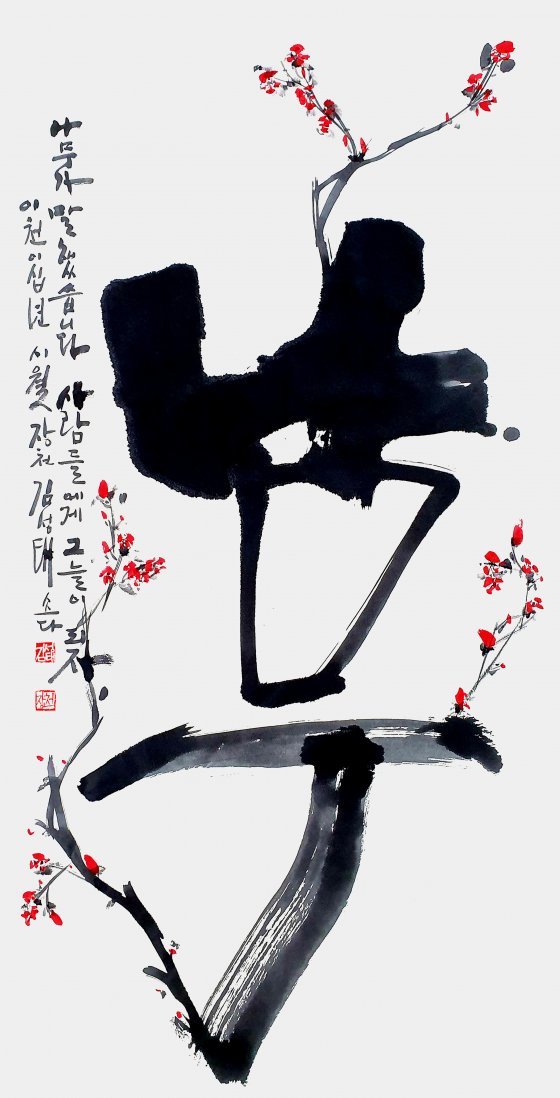 나무
나무가 말했습니다 사람들에게 그늘이 되자
이천이십년 시월 장천 김성태 쓰다